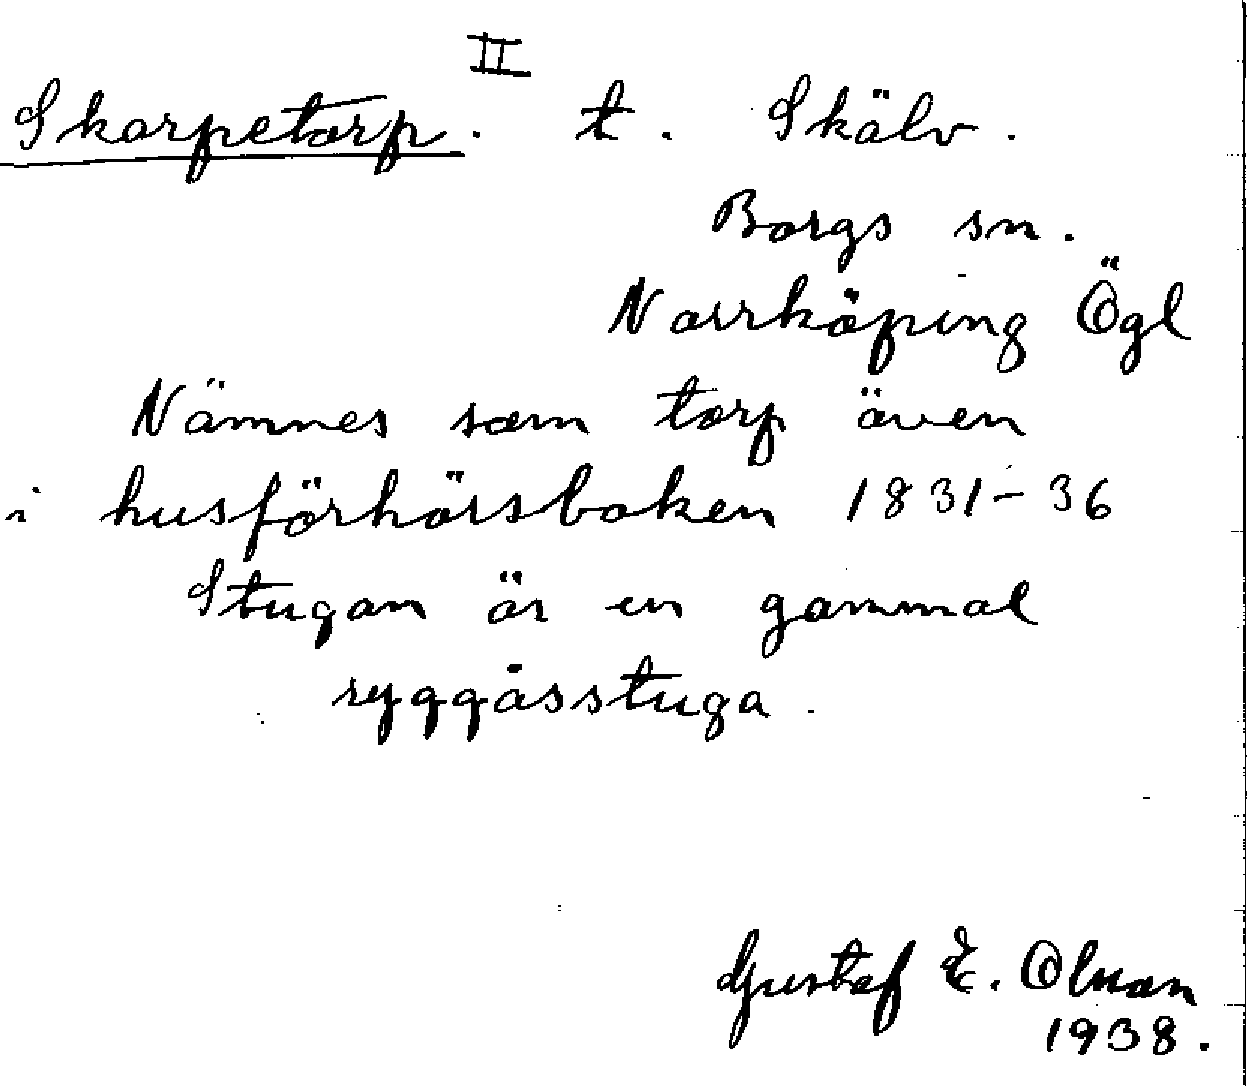 II
Skorpetorp. t. Skälv.
Borgs sn.
Norrköping Ögl
Nämnes som torp även
i husförhörsboken 1831-36
Stugan är en gammal
ryggåsstuga.
Gustaf E.
1938.